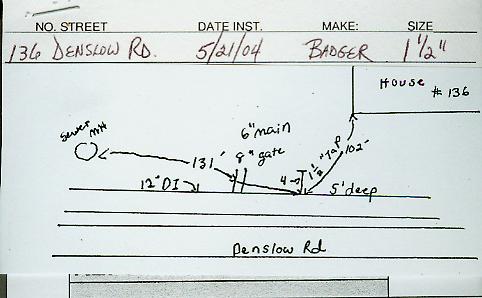 NO. STREET DATE INST. MAKE: SIZE
136 DENSLOW RD. 5/21/04 BADGER 1 1/2"
HOUSE # 136
sewer MH
6" main
8" gate
131'
1 1/2" Tap
102'
12" DI
4
5' deep
Denslow Rd